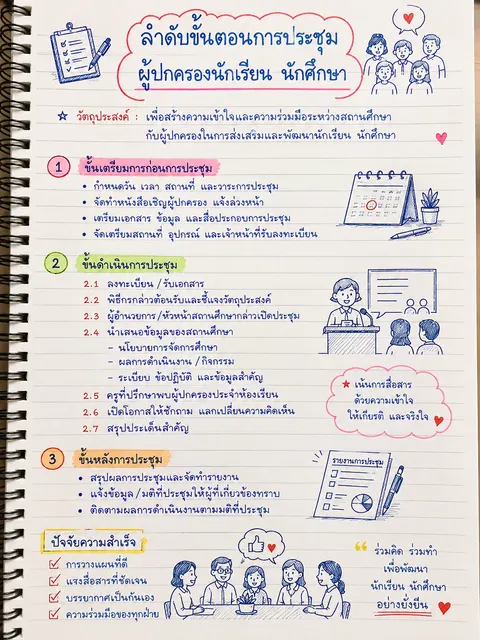 ลำดับขั้นตอนการประชุม
ผู้ปกครองนักเรียน นักศึกษา
☆ วัตถุประสงค์ : เพื่อสร้างความเข้าใจและความร่วมมือระหว่างสถานศึกษา
กับผู้ปกครองในการส่งเสริมและพัฒนานักเรียน นักศึกษา
1 ขั้นเตรียมการก่อนการประชุม
• กำหนดวัน เวลา สถานที่ และวาระการประชุม
• จัดทำหนังสือเชิญผู้ปกครอง แจ้งล่วงหน้า
• เตรียมเอกสาร ข้อมูล และสื่อประกอบการประชุม
• จัดเตรียมสถานที่ อุปกรณ์ และเจ้าหน้าที่รับลงทะเบียน
2 ขั้นดำเนินการประชุม
2.1 ลงทะเบียน / รับเอกสาร
2.2 พิธีกรกล่าวต้อนรับและชี้แจงวัตถุประสงค์
2.3 ผู้อำนวยการ / หัวหน้าสถานศึกษากล่าวเปิดประชุม
2.4 นำเสนอข้อมูลของสถานศึกษา
- นโยบายการจัดการศึกษา
- ผลการดำเนินงาน / กิจกรรม
- ระเบียบ ข้อปฏิบัติ และข้อมูลสำคัญ
2.5 ครูที่ปรึกษาพบผู้ปกครองประจำห้องเรียน
2.6 เปิดโอกาสให้ซักถาม แลกเปลี่ยนความคิดเห็น
2.7 สรุปประเด็นสำคัญ
★ เน้นการสื่อสาร
ด้วยความเข้าใจ
ให้เกียรติ และจริงใจ
3 ขั้นหลังการประชุม
• สรุปผลการประชุมและจัดทำรายงาน
• แจ้งข้อมูล / มติที่ประชุมให้ผู้ที่เกี่ยวข้องทราบ
• ติดตามผลการดำเนินงานตามมติที่ประชุม
รายงานการประชุม
ปัจจัยความสำเร็จ
☑ การวางแผนที่ดี
☑ แจงสื่อสารที่ชัดเจน
☑ บรรยากาศเป็นกันเอง
☑ ความร่วมมือของทุกฝ่าย
“ ร่วมคิด ร่วมทำ
เพื่อพัฒนา
นักเรียน นักศึกษา
อย่างยั่งยืน